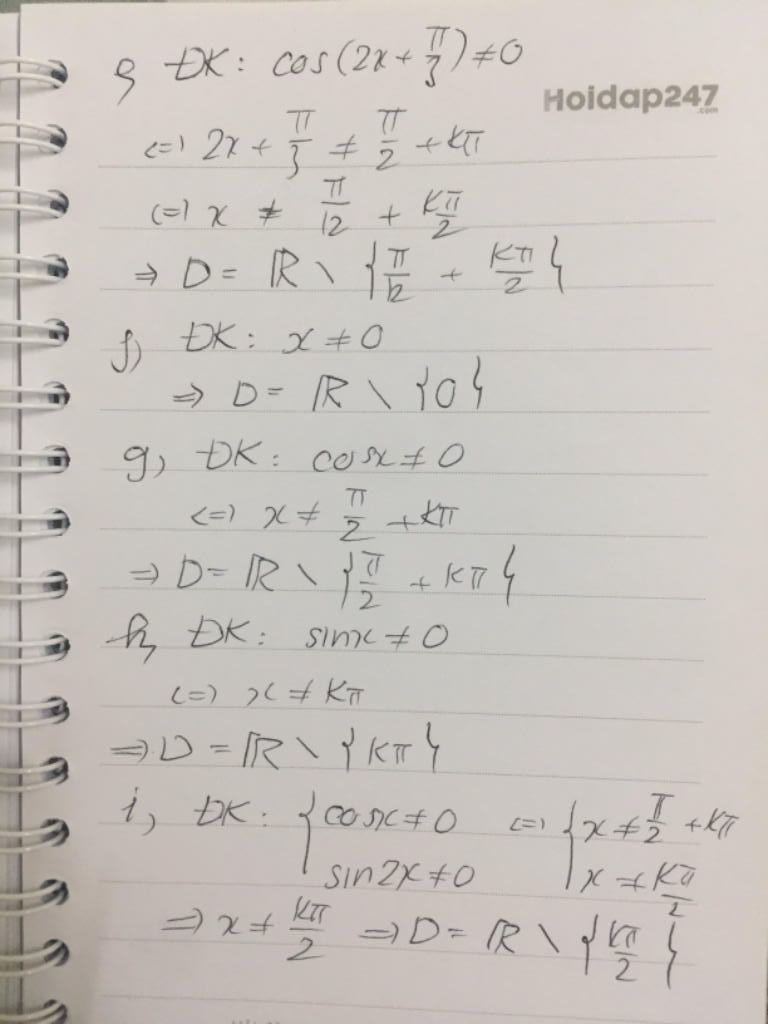 e, ĐK: cos(2x + π/3) ≠ 0
Hoidap247
.com
<=> 2x + π/3 ≠ π/2 + kπ
<=> x ≠ π/12 + kπ/2
=> D = ℝ \ {π/12 + kπ/2}
f) ĐK: x ≠ 0
=> D = ℝ \ {0}
g, ĐK: cosx ≠ 0
<=> x ≠ π/2 + kπ
=> D = ℝ \ {π/2 + kπ}
h, ĐK: sinx ≠ 0
<=> x ≠ kπ
=> D = ℝ \ {kπ}
i, ĐK: { cosx ≠ 0 <=> { x ≠ π/2 + kπ
sin2x ≠ 0 x ≠ kπ/2
=> x ≠ kπ/2 => D = ℝ \ {kπ/2}